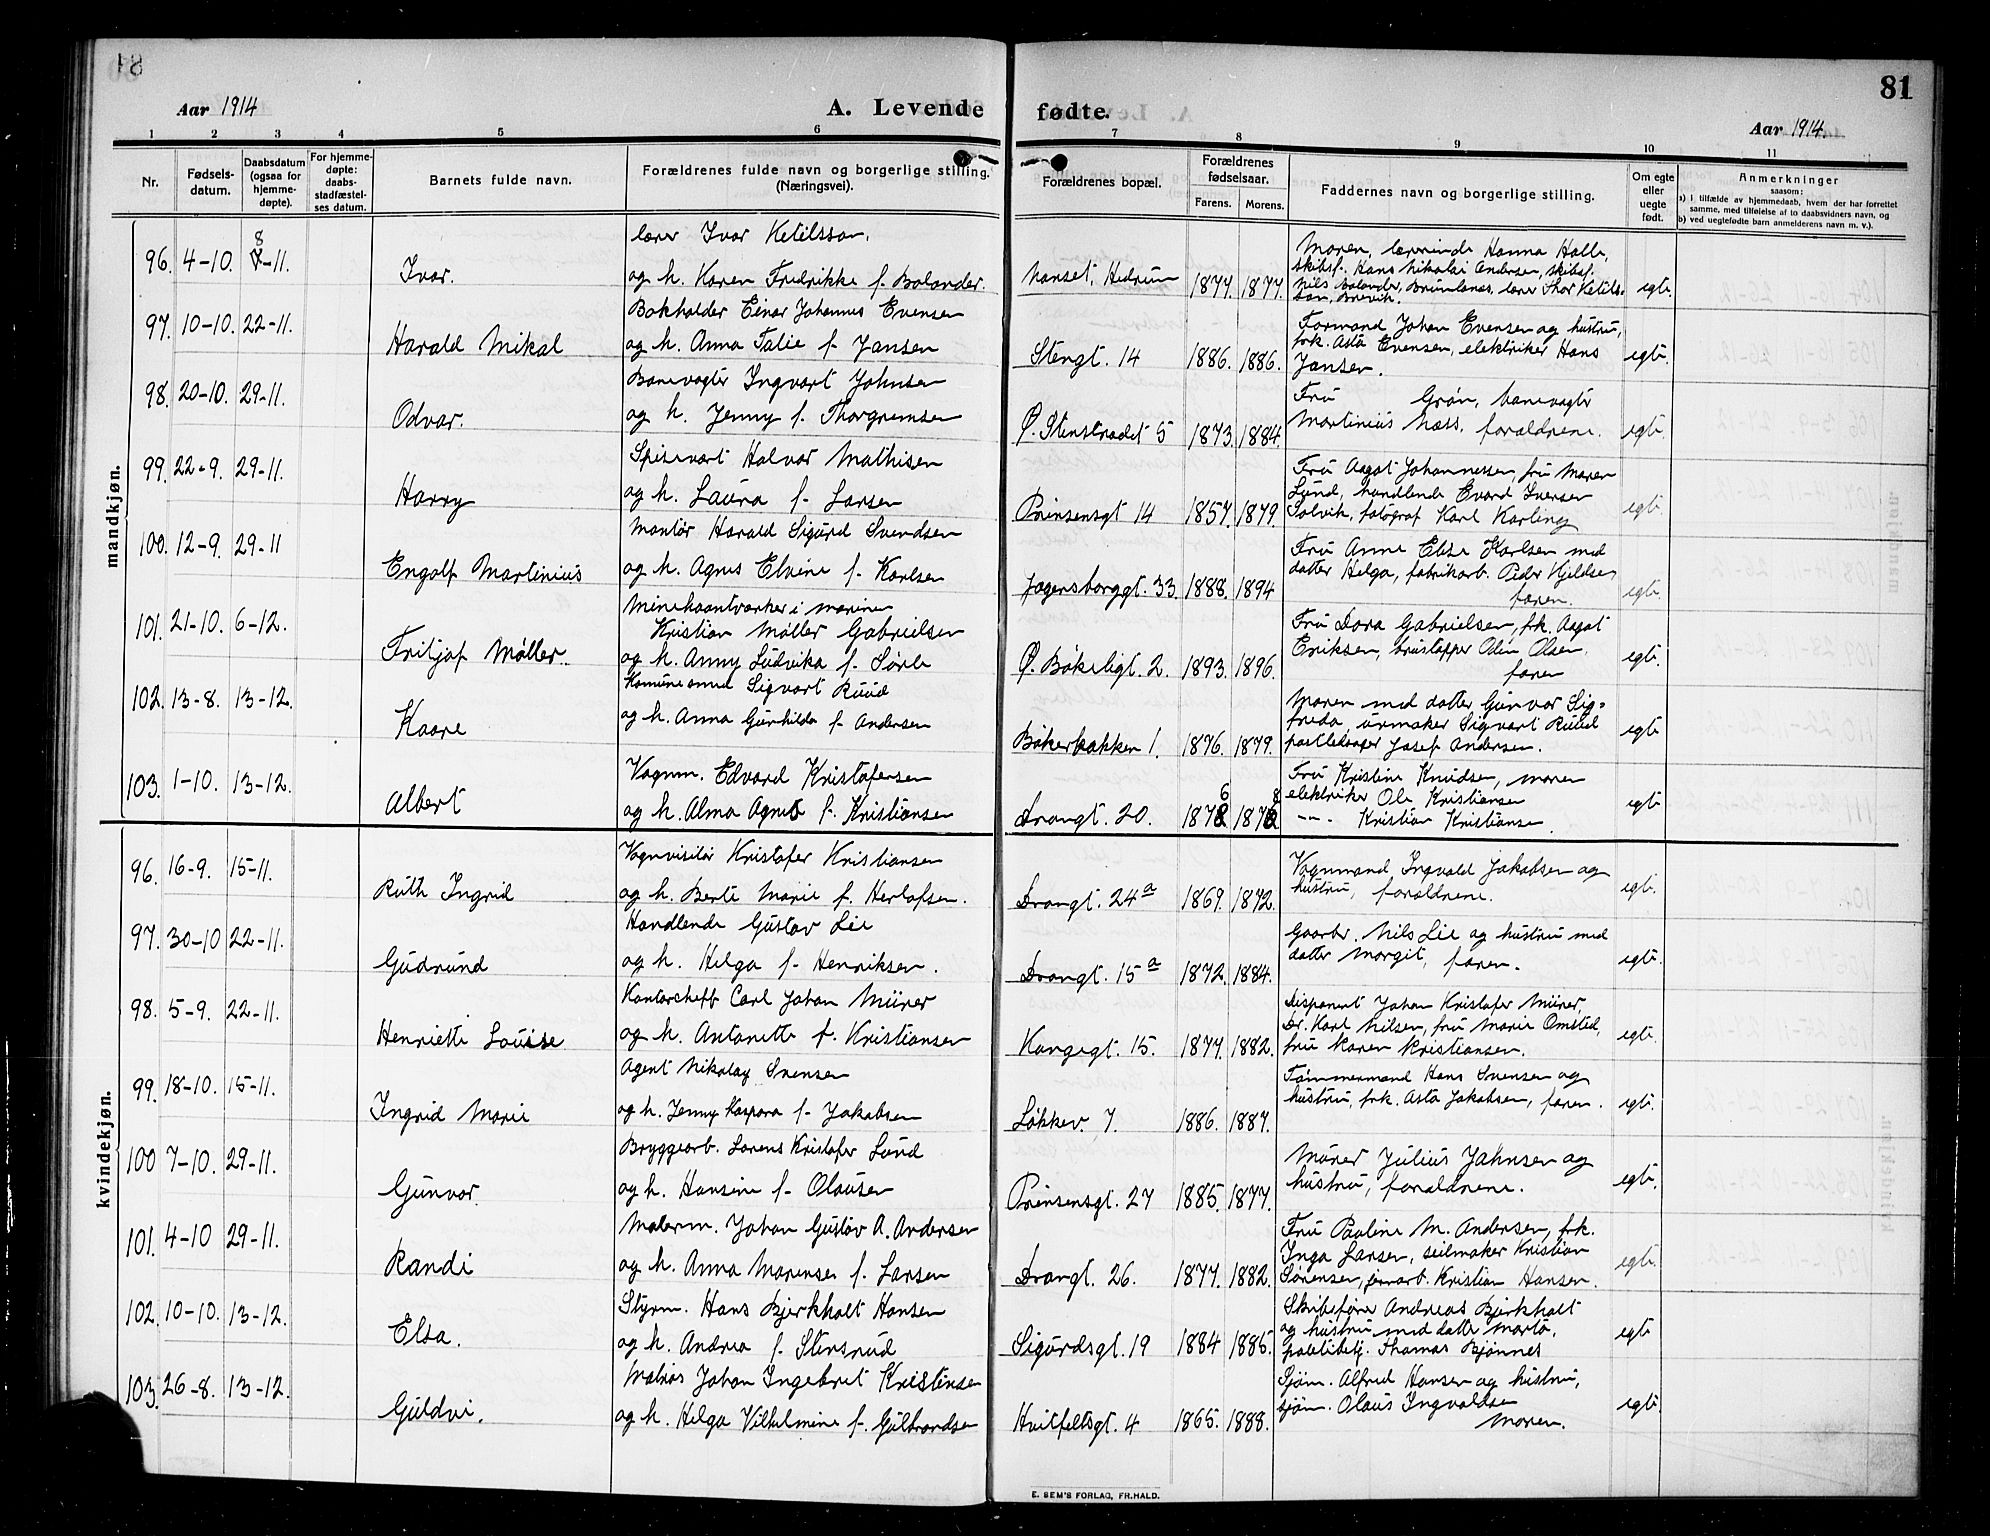 81
Aar 1914
A. Levende fødte.
Aar 1914.
1 2 3 4 5 6 7 8 9 10 11
Nr.
Fødselsdatum.
Daabsdatum (ogsaa for hjemmedøpte).
For hjemmedøpte: daabsstadfæstelses datum.
Barnets fulde navn.
Forældrenes fulde navn og borgerlige stilling. (Næringsvei).
Forældrenes bopæl.
Forældrenes fødselsaar.
Farens. Morens.
Faddernes navn og borgerlige stilling.
Om egte eller uegte født.
Anmerkninger
saasom:
a) i tilfælde av hjemmedaab, hvem der har forrettet samme, med tilføielse af to daabsvidners navn, og
b) ved uegtefødte barn anmelderens navn m. v.).
mandkjøn.
96. 4-10. 8-11. Ivar.
lærer Ivar Ketilsson.
og h. Karen Fredrikke f. Bolander.
Nanset, Hedrum 1877. 1877.
Moren, lærerinde Hanna Holle,
skibsf. Hans Nikolai Andersen, skibsf.
Nils Bolander, Brunlanes, lærer Thor Ketilsson, Brevik.
egte.
97. 10-10. 22-11. Harald Mikal
Bokholder Einar Johannes Evensen
og h. Anna Talie f. Jansen
Stengt. 14 1886. 1886.
Formand Johan Evensen og hustru,
frk. Asta Evensen, elektriker Hans
Jansen.
egte.
98. 20-10. 29-11. Odvar.
Banevogter Ingvart Johnsen
og h. Jenny f. Thorgremsen
Ø. Stenstrædet 5 1873. 1884.
Fru Grøn, banevogter
Martinius Næss, forældrene.
egte.
99. 22-9. 29-11. Harry
Spisevert Halvor Mathisen
og h. Laura f. Larsen
Prinsensgt 14 1857. 1879.
Fru Aagot Johannessen, fru Maren
Lund, handlende Evard Iversen
Solvik, fotograf Karl Karling
egte.
100. 12-9. 29-11 Engolf Martinius
Montør Harald Sigurd Svendsen
og h. Agnes Elvine f. Karlsen
Jegersborggt. 33. 1888. 1894
Fru Anne Else Karlsen med
datter Helga, fabrikarb. Peder Kjeldsen
faren.
egte.
101. 21-10. 6-12. Fritjof Møller.
Minehaantværker i marinen
Kristian Møller Gabrielsen
og h. Anny Ludvika f. Sørli
Ø. Bøkeligt. 2. 1893. 1896.
Fru Dora Gabrielsen, frk. Aagot
Eriksen, brustapper Odin Olsen,
faren
egte.
102. 13-8. 13-12. Kaare
Komunesmed Sigvart Ruud
og h. Anna Gunhilda f. Andersen
Bøkerbakken 1. 1876. 1879.
Moren med datter Gunvor Sigfreda, urmaker Sigvart Ruud
postledsager Josef Andersen.
egte
103. 1-10. 13-12. Albert
Vognm. Edvard Kristofersen
og h. Alma Agnes f. Kristiansen
Drangt. 20. 1876 1878
Fru Kristine Knudsen, moren
elektriker Ole Kristiansen
—"— Kristian Kristiansen.
egte
kvindekjøn.
96. 16-9. 15-11. Ruth Ingrid
Vognvisitør Kristofer Kristiansen
og h. Berte Marie f. Herlofsen.
Drangt. 24a 1869. 1872.
Vognmand Ingvald Jakobsen og
hustru, forældrene.
egte.
97. 30-10 22-11. Gudrund
Handlende Gustav Lie
og h. Helga f. Henriksen.
Drangt. 15a 1872. 1884.
Gaarbr. Nils Lie og hustru med
datter Margit, faren.
egte.
98. 5-9. 22-11. Henriette Louise
Kontorcheff Carl Johan Mürer
og h. Antonette f. Kristiansen
Kongegt. 15. 1877. 1882.
Disponent Johan Kristofer Mürer,
Dr. Karl Nilsen, fru Marie Omsted,
fru Karen Kristiansen.
egte.
99. 18-10. 15-11. Ingrid Marie
Agent Nikolay Svensen
og h. Jenny Kaspara f. Jakobsen
Løkkev. 7. 1886. 1887.
Tømmermand Hans Svensen og
hustru, frk. Asta Jakobsen, faren.
egte.
100 7-10. 29-11. Gunvor.
Bryggearb. Lorens Kristofer Lund
og h. Hansine f. Olausen
Prinsensgt. 27 1885. 1877.
Murer Julius Jahnsen og
hustru, forældrene.
egte.
101. 4-10 29-11. Randi
Malerm. Johan Gustav A. Andersen
og h. Anna Marense f. Larsen
Drangt. 26. 1877. 1882.
Fru Pauline M. Andersen, frk.
Inga Larsen, seilmaker Kristian
Sørensen, formarb. Kristian Hansen.
egte.
102. 10-10. 13-12. Elsa.
Styrm. Hans Bjerkholt Hansen
og h. Andrea f. Stensrud
Sigurdsgt. 19 1884 1885.
Skibsfører Andreas Bjerkholt
og hustru med datter Marta,
politibetj. Thomas Bjønnes
egte
103. 26-8. 13-12. Guldvi.
Matros Johan Ingebret Kristensen
og h. Helga Vilhelmine f. Gulbrandsen
Hvitfeltsgt. 4 1865. 1888.
Sjøm. Alfred Hansen og hustru,
sjøm. Olaus Ingvaldsen
Moren.
egte.
E. SEM'S FORLAG, FR.HALD.